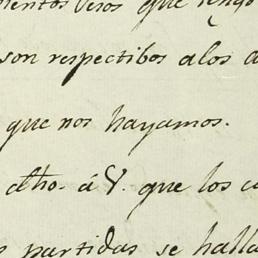 que tengo
son respectibos alos
que nos hayamos.
dho. á V. que los
partidas se halla